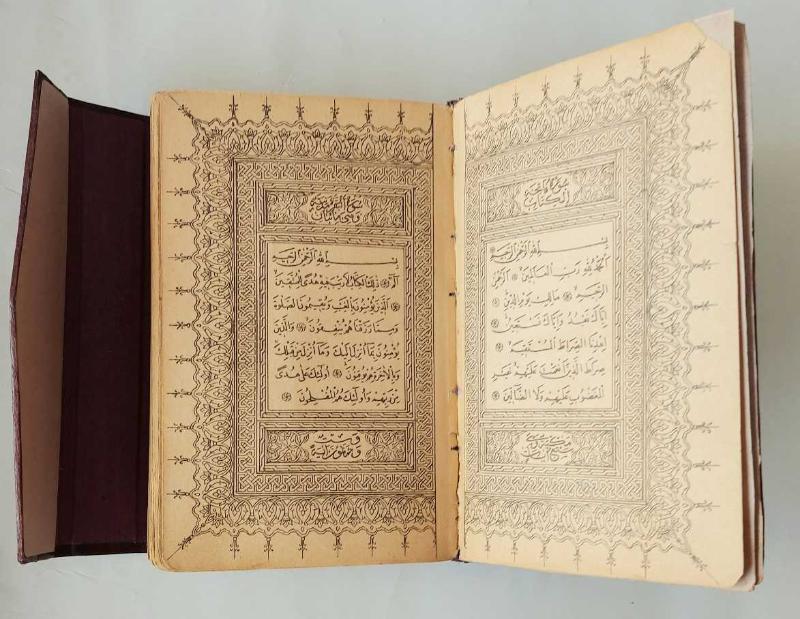 سورة فاتحة
الكتاب
بِسْمِ اللهِ الرَّحْمٰنِ الرَّحِيمِ
اَلْحَمْدُ لِلّٰهِ رَبِّ الْعَالَمِينَ الرَّحْمٰنِ
الرَّحِيمِ مَالِكِ يَوْمِ الدِّينِ
اِيَّاكَ نَعْبُدُ وَاِيَّاكَ نَسْتَعِينُ
اِهْدِنَا الصِّرَاطَ الْمُسْتَقِيمَ
صِرَاطَ الَّذِينَ اَنْعَمْتَ عَلَيْهِمْ غَيْرِ
الْمَغْضُوبِ عَلَيْهِمْ وَلَا الضَّالِّينَ
سبع آيات
سورة البقرة مدنية
وهي مائتان
بِسْمِ اللهِ الرَّحْمٰنِ الرَّحِيمِ
الٓمٓ ذٰلِكَ الْكِتَابُ لَا رَيْبَ فِيهِ هُدًى لِلْمُتَّقِينَ
الَّذِينَ يُؤْمِنُونَ بِالْغَيْبِ وَيُقِيمُونَ الصَّلٰوةَ
وَمِمَّا رَزَقْنَاهُمْ يُنْفِقُونَ وَالَّذِينَ
يُؤْمِنُونَ بِمَا اُنْزِلَ اِلَيْكَ وَمَا اُنْزِلَ مِنْ قَبْلِكَ
وَبِالْاٰخِرَةِ هُمْ يُوقِنُونَ اُولٰئِكَ عَلٰى هُدًى
مِنْ رَبِّهِمْ وَاُولٰئِكَ هُمُ الْمُفْلِحُونَ
وست
وثمانون آية